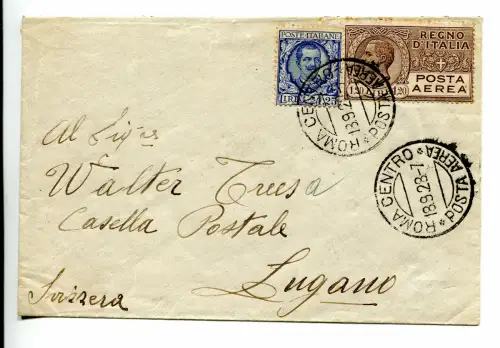 POSTE ITALIANE
LIRE 1,25
REGNO
D'ITALIA
POSTA
AEREA
1.20 LIRE 1.20
ROMA CENTRO
POSTA AEREA
13.9.28-7
Al Sigre
Walter Treesa
Casella Postale
Lugano
Svizzera
ROMA CENTRO
POSTA AEREA
13.9.28-7